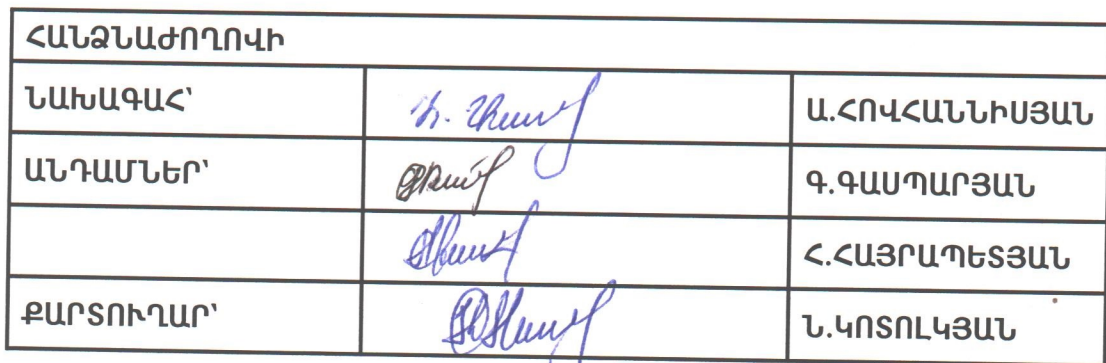 ՀԱՆՁՆԱԺՈՂՈՎԻ
ՆԱԽԱԳԱՀ՝ Ա.ՀՈՎՀԱՆՆԻՍՅԱՆ
ԱՆԴԱՄՆԵՐ՝ Գ.ԳԱՍՊԱՐՅԱՆ
Հ.ՀԱՅՐԱՊԵՏՅԱՆ
ՔԱՐՏՈՒՂԱՐ՝ Ն.ԿՈՏՈԼԿՅԱՆ